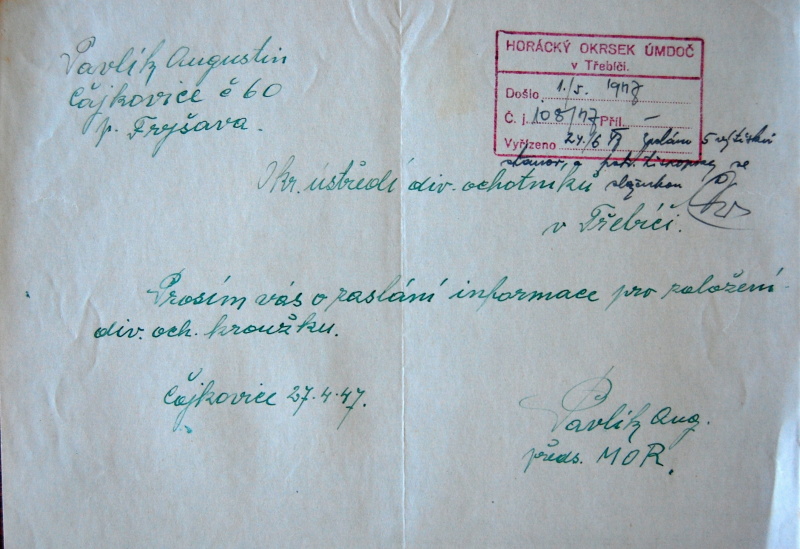 Pavlík Augustin
Čějkovice č 60
p. Fryšava.
HORÁCKÝ OKRSEK ÚMDOČ
v Třebíči.
Došlo 1./5. 1947
Č. j. 108/47 Příl. —
Vyřízeno 24/6
Okr. ústředí div. ochotníků
v Třebíči.
Prosím vás o zaslání informace pro založení
div. och. kroužku.
Čějkovice 27.4.47.
Pavlík Aug.
předs. MOR.